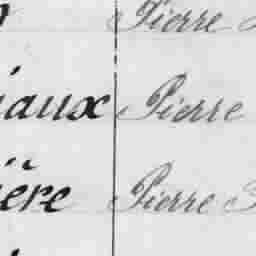 Pierre
iaux Pierre
ière Pierre